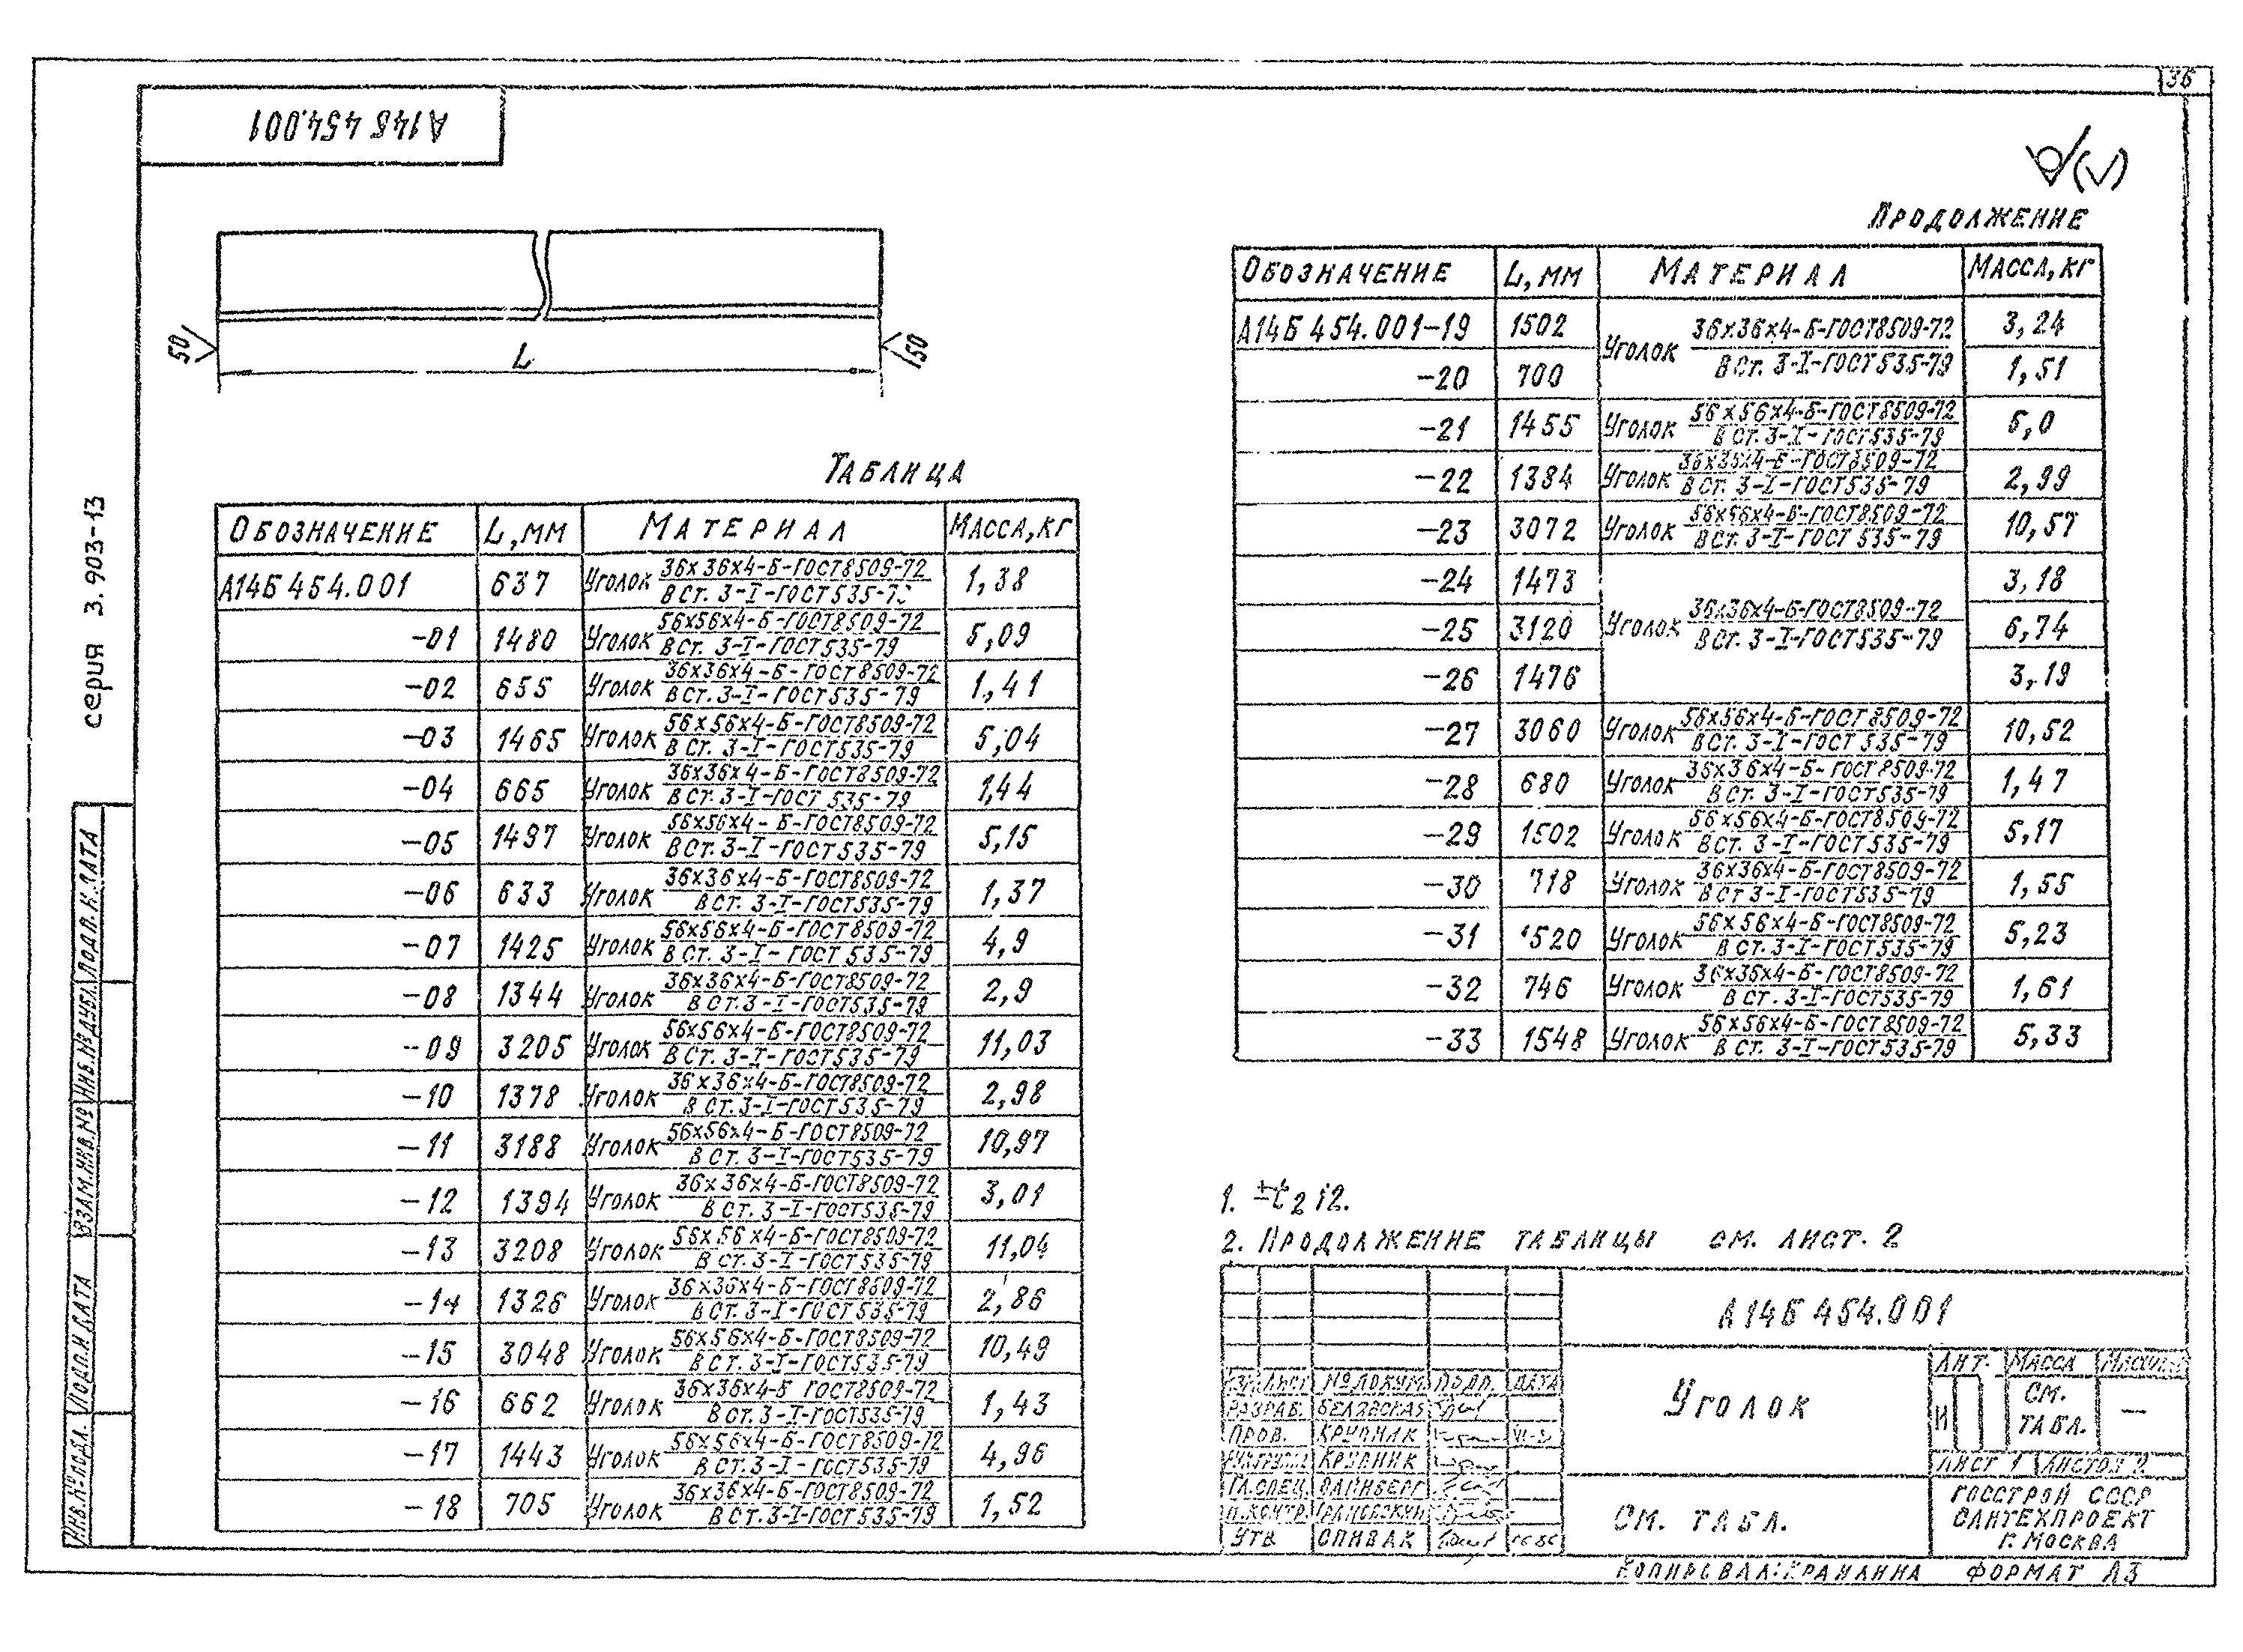 36
А14Б 454.001
серия 3.903-13
50
L
50
Таблица
Обозначение L,мм Материал Масса,кг
А14Б 454.001 637 Уголок 36х36х4-Б-ГОСТ8509-72 1,38
В Ст. 3-I-ГОСТ535-79
-01 1480 Уголок 56х56х4-Б-ГОСТ8509-72 5,09
В Ст. 3-I-ГОСТ535-79
-02 655 Уголок 36х36х4-Б-ГОСТ8509-72 1,41
В Ст. 3-I-ГОСТ535-79
-03 1465 Уголок 56х56х4-Б-ГОСТ8509-72 5,04
В Ст. 3-I-ГОСТ535-79
-04 665 Уголок 36х36х4-Б-ГОСТ8509-72 1,44
В Ст. 3-I-ГОСТ 535-79
-05 1497 Уголок 56х56х4-Б-ГОСТ8509-72 5,15
В Ст. 3-I-ГОСТ535-79
-06 633 Уголок 36х36х4-Б-ГОСТ8509-72 1,37
В Ст. 3-I-ГОСТ535-79
-07 1425 Уголок 56х56х4-Б-ГОСТ8509-72 4,9
В Ст. 3-I-ГОСТ 535-79
-08 1344 Уголок 36х36х4-Б-ГОСТ8509-72 2,9
В Ст. 3-I-ГОСТ535-79
-09 3205 Уголок 56х56х4-Б-ГОСТ8509-72 11,03
В Ст. 3-I-ГОСТ535-79
-10 1378 Уголок 36х36х4-Б-ГОСТ8509-72 2,98
В Ст. 3-I-ГОСТ535-79
-11 3188 Уголок 56х56х4-Б-ГОСТ8509-72 10,97
В Ст. 3-I-ГОСТ535-79
-12 1394 Уголок 36х36х4-Б-ГОСТ8509-72 3,01
В Ст. 3-I-ГОСТ535-79
-13 3208 Уголок 56х56х4-Б-ГОСТ8509-72 11,04
В Ст. 3-I-ГОСТ535-79
-14 1326 Уголок 36х36х4-Б-ГОСТ8509-72 2,86
В Ст. 3-I-ГОСТ535-79
-15 3048 Уголок 56х56х4-Б-ГОСТ8509-72 10,49
В Ст. 3-I-ГОСТ535-79
-16 662 Уголок 36х36х4-Б ГОСТ8509-72 1,43
В Ст. 3-I-ГОСТ535-79
-17 1443 Уголок 56х56х4-Б-ГОСТ8509-72 4,96
В Ст. 3-I-ГОСТ535-79
-18 705 Уголок 36х36х4-Б-ГОСТ8509-72 1,52
В Ст. 3-I-ГОСТ535-79
Продолжение
Обозначение L,мм Материал Масса,кг
А14Б 454.001-19 1502 Уголок 36х36х4-Б-ГОСТ8509-72 3,24
-20 700 В Ст. 3-I-ГОСТ535-79 1,51
-21 1455 Уголок 56х56х4-Б-ГОСТ8509-72 5,0
В Ст. 3-I-ГОСТ535-79
-22 1384 Уголок 36х36х4-Б-ГОСТ8509-72 2,99
В Ст. 3-I-ГОСТ535-79
-23 3072 Уголок 56х56х4-Б-ГОСТ8509-72 10,57
В Ст. 3-I-ГОСТ 535-79
-24 1473 3,18
-25 3120 Уголок 36х36х4-Б-ГОСТ8509-72 6,74
В Ст. 3-I-ГОСТ535-79
-26 1476 3,19
-27 3060 Уголок 56х56х4-Б-ГОСТ8509-72 10,52
В Ст. 3-I-ГОСТ 535-79
-28 680 Уголок 36х36х4-Б-ГОСТ8509-72 1,47
В Ст. 3-I-ГОСТ535-79
-29 1502 Уголок 56х56х4-Б-ГОСТ8509-72 5,17
В Ст. 3-I-ГОСТ535-79
-30 718 Уголок 36х36х4-Б-ГОСТ8509-72 1,55
В Ст. 3-I-ГОСТ535-79
-31 1520 Уголок 56х56х4-Б-ГОСТ8509-72 5,23
В Ст. 3-I-ГОСТ535-79
-32 746 Уголок 36х36х4-Б-ГОСТ8509-72 1,61
В Ст. 3-I-ГОСТ535-79
-33 1548 Уголок 56х56х4-Б-ГОСТ8509-72 5,33
В Ст. 3-I-ГОСТ535-79
1. ±t2 i2.
2. Продолжение таблицы см. лист. 2
А14Б 454.001
Уголок
Лит. Масса
И см. табл. —
Лист 1 Листов 2
См. табл.
Госстрой СССР
Сантехпроект
г. Москва
Лист №докум. Подп. Дата
Разраб. Белявская
Пров. Крупник
Крупник
Гл.спец. Вайнберг
Н.контр.
Утв Спивак
Формат А3
Инв.№подл. Подп.и дата Взам.инв.№ Инв.№дубл. Подп.и дата